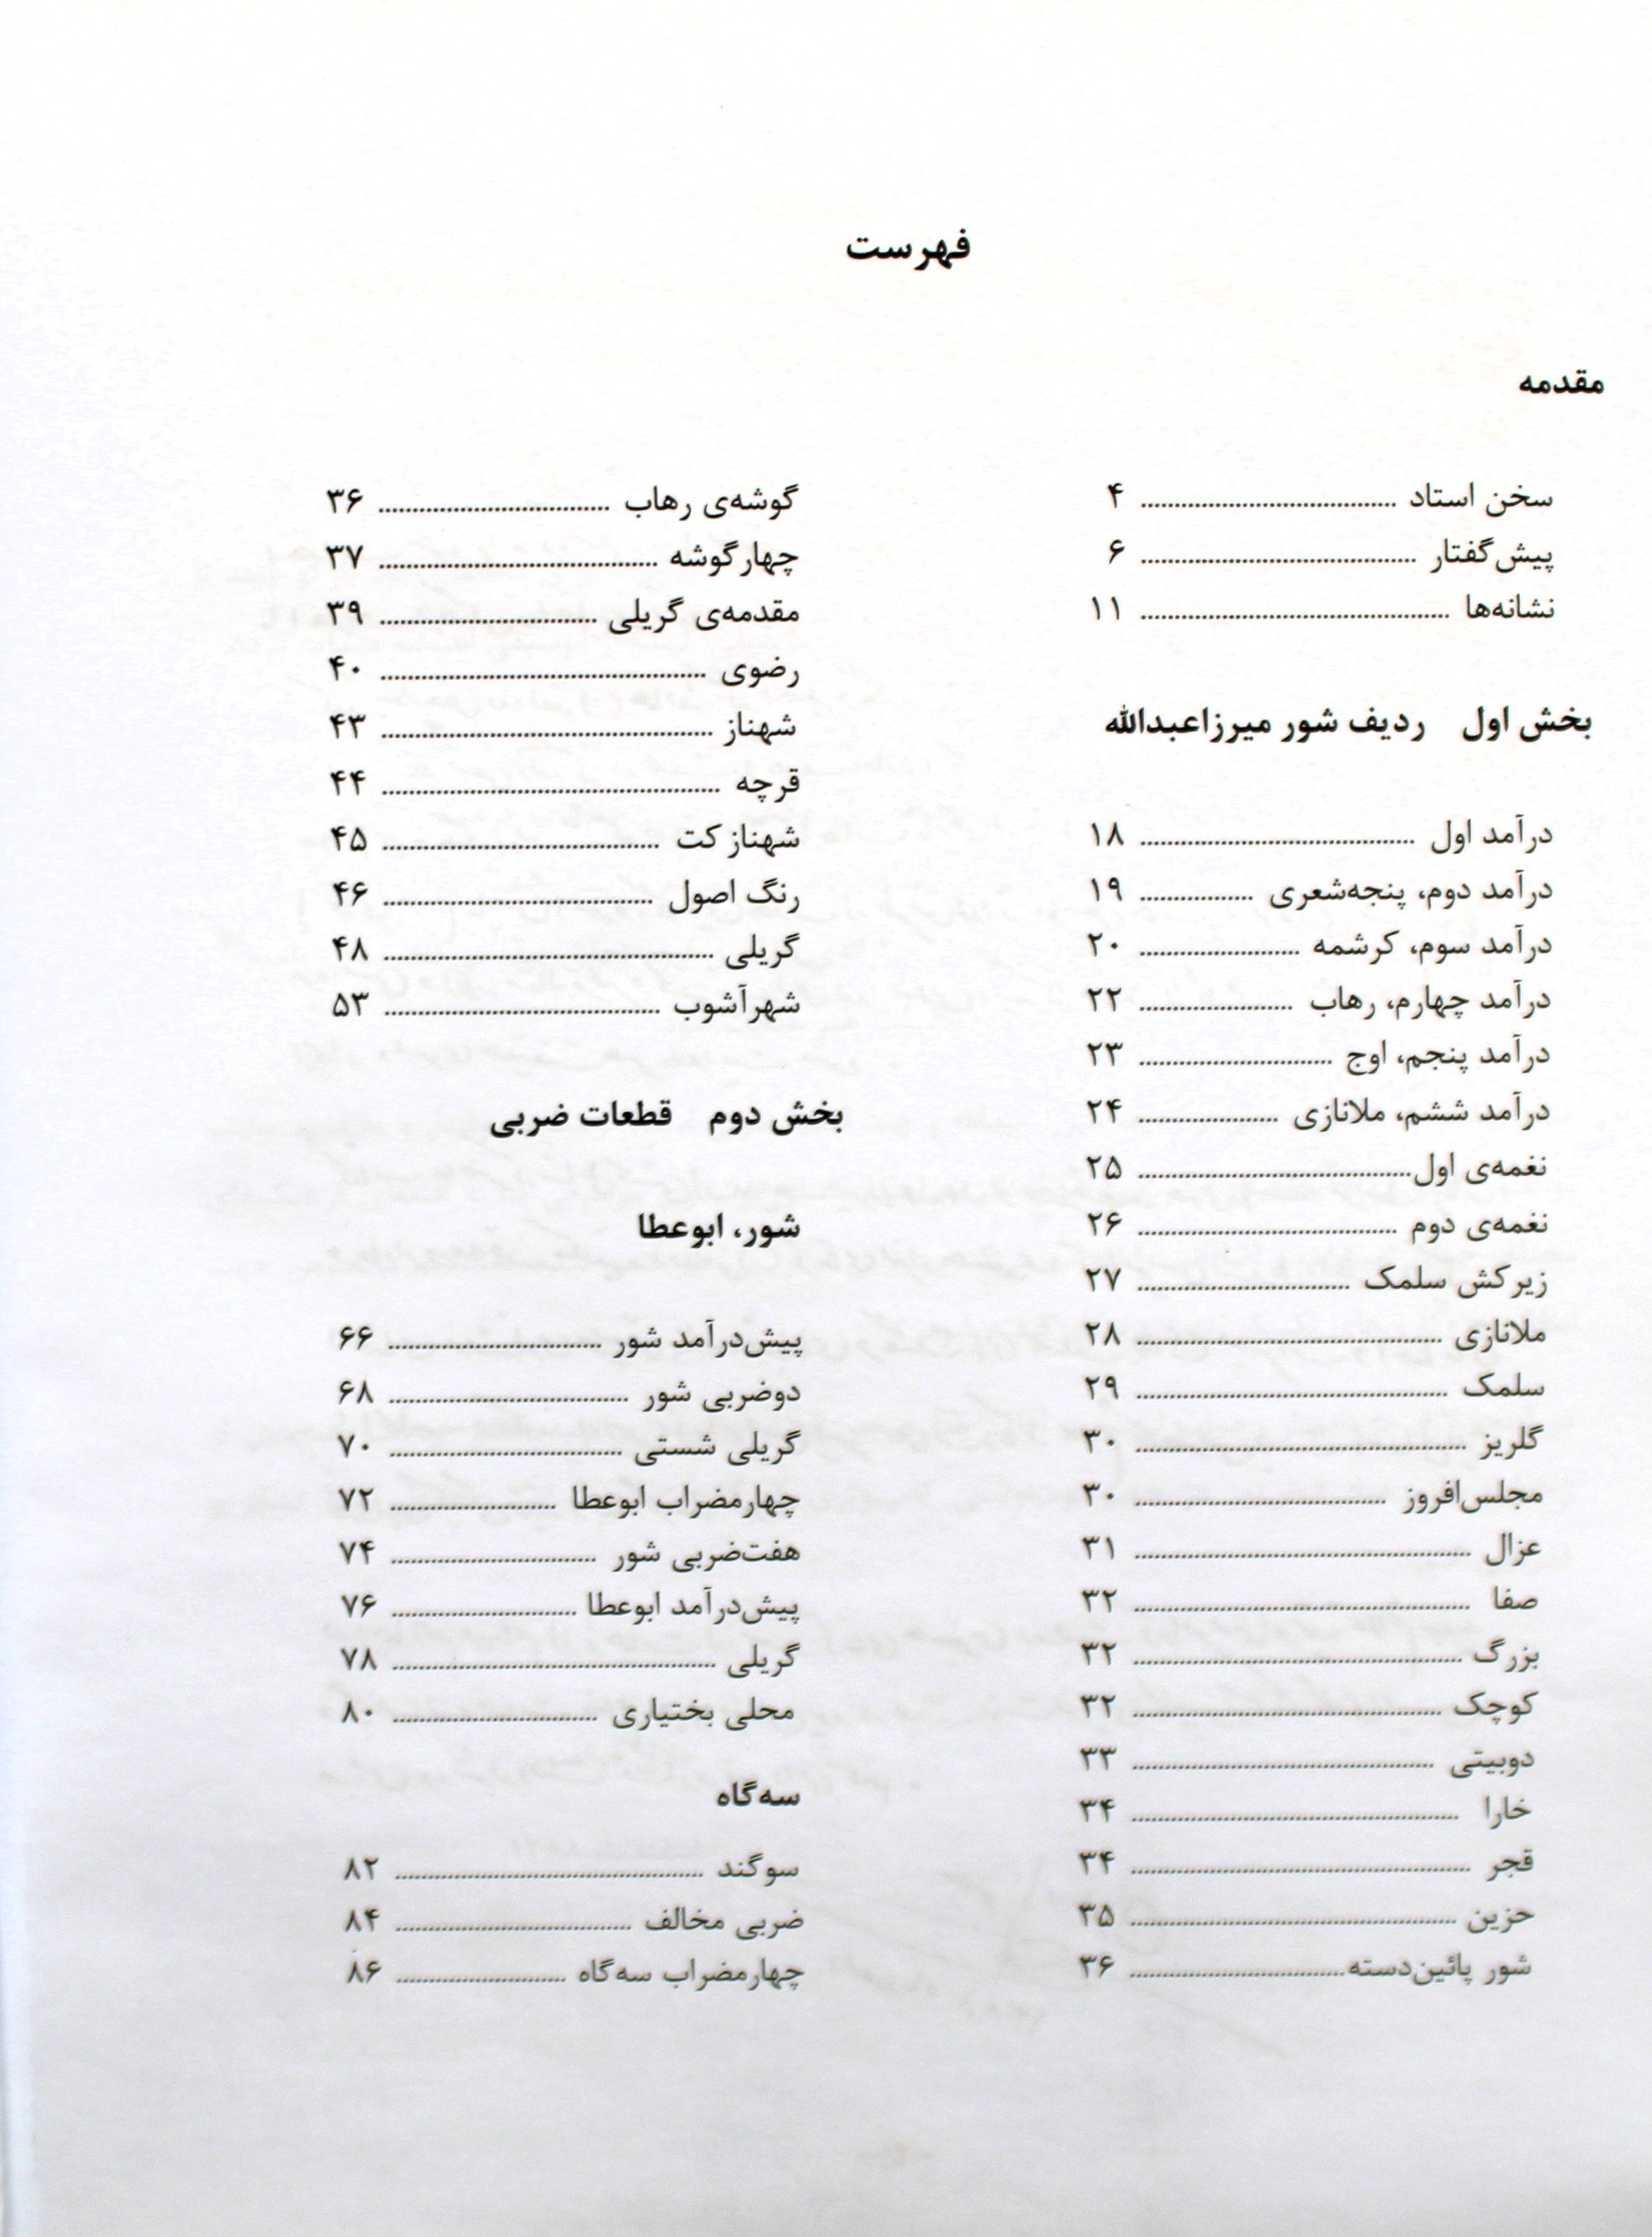 فهرست
مقدمه
سخن استاد ........ ۴
پیش‌گفتار ........ ۶
نشانه‌ها ........ ۱۱
بخش اول ردیف شور میرزاعبدالله
درآمد اول ........ ۱۸
درآمد دوم، پنجه‌شعری ........ ۱۹
درآمد سوم، کرشمه ........ ۲۰
درآمد چهارم، رهاب ........ ۲۲
درآمد پنجم، اوج ........ ۲۳
درآمد ششم، ملانازی ........ ۲۴
نغمه‌ی اول ........ ۲۵
نغمه‌ی دوم ........ ۲۶
زیرکش سلمک ........ ۲۷
ملانازی ........ ۲۸
سلمک ........ ۲۹
گلریز ........ ۳۰
مجلس‌افروز ........ ۳۰
عزال ........ ۳۱
صفا ........ ۳۲
بزرگ ........ ۳۲
کوچک ........ ۳۲
دوبیتی ........ ۳۳
خارا ........ ۳۴
قجر ........ ۳۴
حزین ........ ۳۵
شور پائین‌دسته ........ ۳۶
گوشه‌ی رهاب ........ ۳۶
چهارگوشه ........ ۳۷
مقدمه‌ی گریلی ........ ۳۹
رضوی ........ ۴۰
شهناز ........ ۴۳
قرچه ........ ۴۴
شهناز کت ........ ۴۵
رنگ اصول ........ ۴۶
گریلی ........ ۴۸
شهرآشوب ........ ۵۳
بخش دوم قطعات ضربی
شور، ابوعطا
پیش‌درآمد شور ........ ۶۶
دوضربی شور ........ ۶۸
گریلی شستی ........ ۷۰
چهارمضراب ابوعطا ........ ۷۲
هفت‌ضربی شور ........ ۷۴
پیش‌درآمد ابوعطا ........ ۷۶
گریلی ........ ۷۸
محلی بختیاری ........ ۸۰
سه‌گاه
سوگند ........ ۸۲
ضربی مخالف ........ ۸۴
چهارمضراب سه‌گاه ........ ۸۶